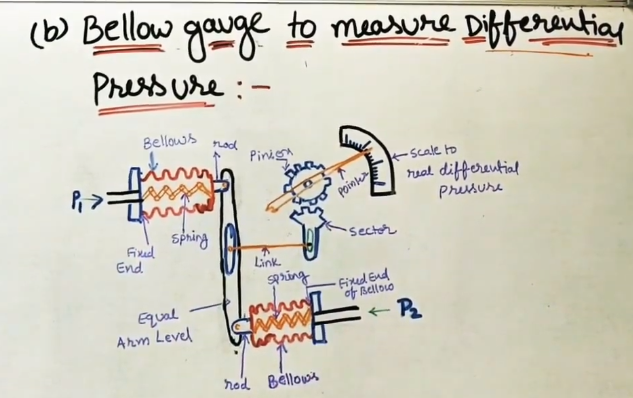 (b) Bellow gauge to measure Differential
Pressure :-
Bellows
rod
Pinion
Scale to
real differential
pressure
Pointer
P1
Spring
Fixed
End
Sector
Link
Spring
Fixed End
of Bellow
Equal
Arm Level
P2
rod
Bellows